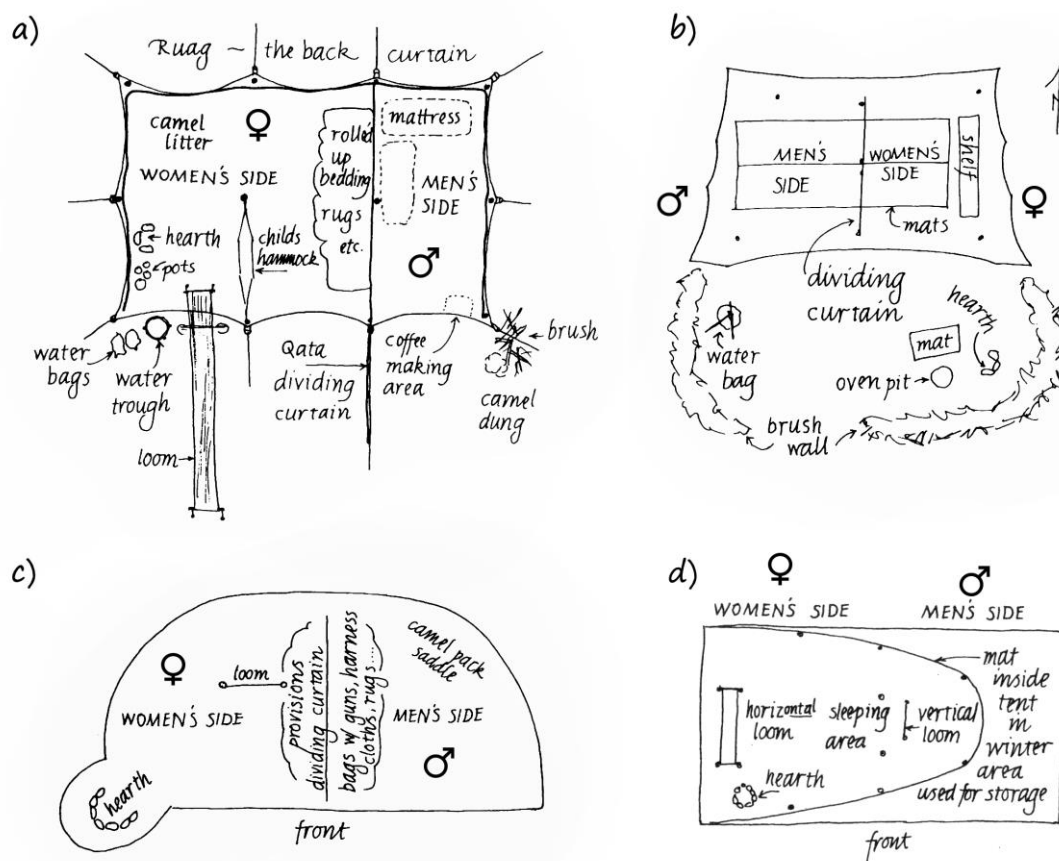 a)
Ruag ~ the back curtain
camel
litter
♀
WOMEN'S SIDE
hearth
pots
childs
hammock
rolled
up
bedding
rugs
etc.
mattress
MEN'S
SIDE
♂
water
bags
water
trough
loom
Qata
dividing
curtain
coffee
making
area
brush
camel
dung
b)
♂
MEN'S
SIDE
WOMEN'S
SIDE
shelf
♀
mats
dividing
curtain
water
bag
hearth
mat
oven pit
brush
wall
c)
♀
loom
WOMEN'S SIDE
provisions
dividing curtain
bags w guns, harness
cloths, rugs....
camel pack
saddle
MEN'S SIDE
♂
hearth
front
d)
♀
WOMEN'S SIDE
♂
MEN'S SIDE
horizontal
loom
sleeping
area
vertical
loom
mat
inside
tent
in
winter
area
used for storage
hearth
front